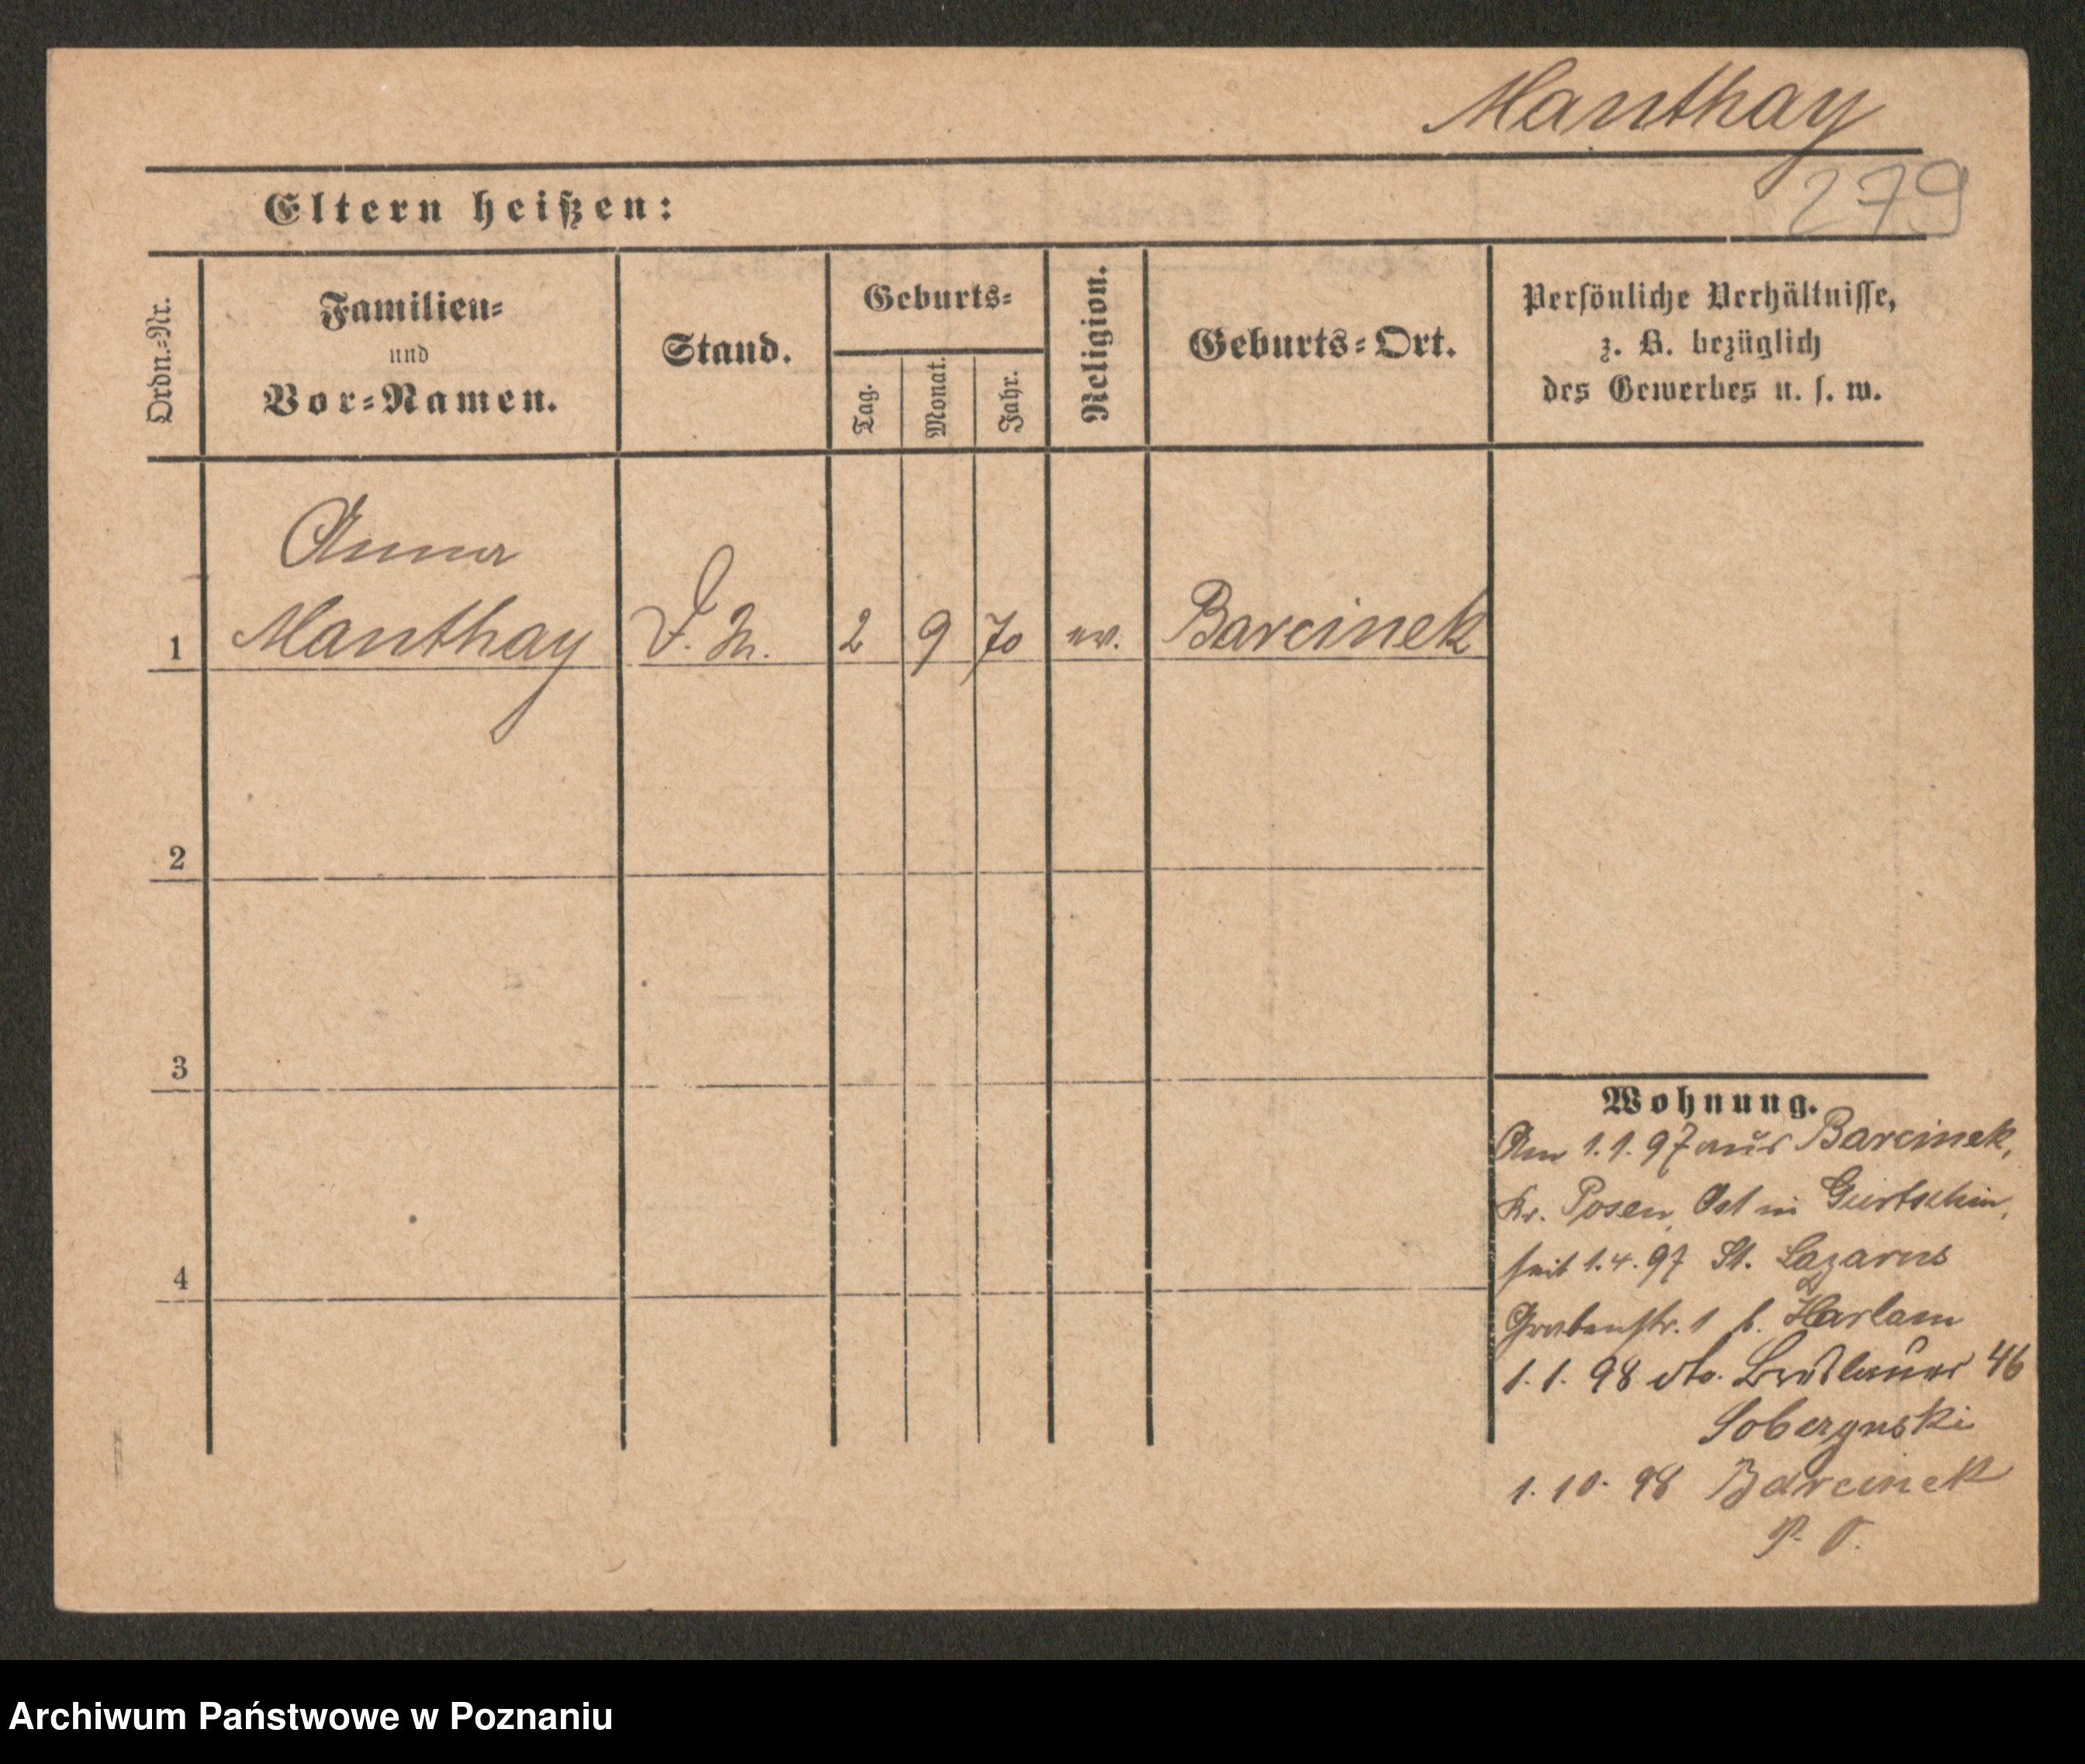 Manthay
279
Eltern heißen:
Ordn.=Nr.
Familien=
und
Vor=Namen.
Stand.
Geburts=
Tag.
Monat.
Jahr.
Religion.
Geburts=Ort.
Persönliche Verhältnisse,
z. B. bezüglich
des Gewerbes u. s. w.
Anna
1 Manthay 2 9 70 ev. Barcinek
2
3
4
Wohnung.
Am 1.1.97 aus Barcinek,
Kr. Posen Ost in Gurtschin,
seit 1.4.97 St. Lazarus
Grabenstr. 1 b. Harlam
1.1.98 dto. Breslauer 46
1.10.98 Barcinek
P. O.
Archiwum Państwowe w Poznaniu